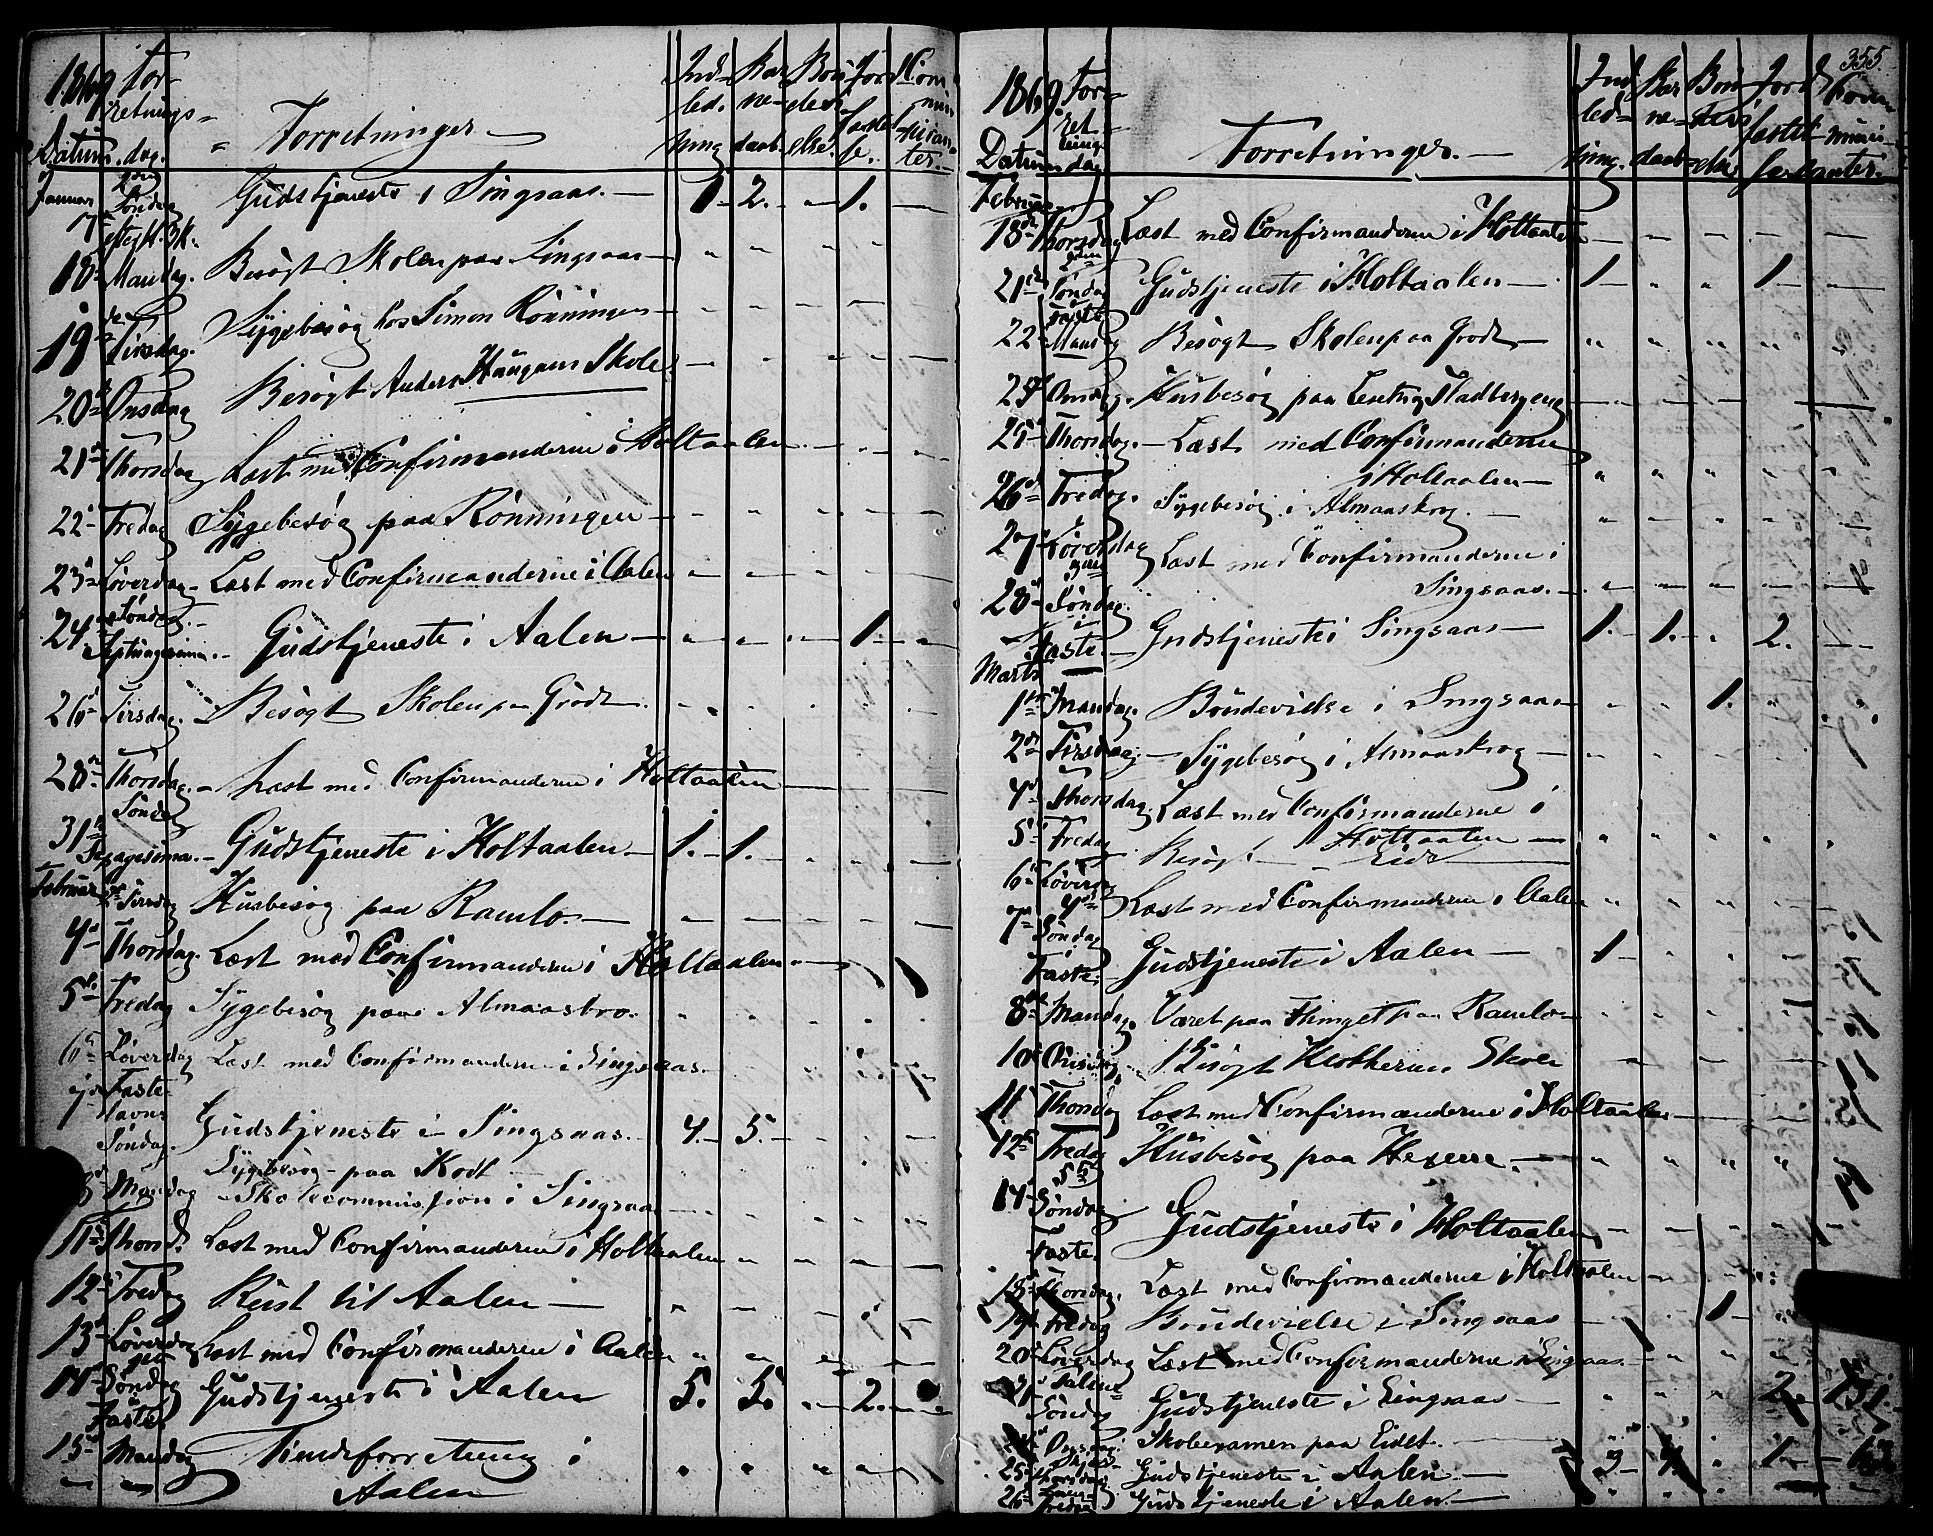 1869 For-
retnings-
Datum. dag. Forretninger Ind- led- ning Bar ne- daab. Bon de- else. Jord- fæstel- se. Com- mu- nikan- ter.
Januar 2den Søndag
17 efter H. 3 K. Gudstjeneste i Singsaas. — 1 2. - 1. —
18 Mandag. Besøgt Skolen paa Singsaas —
19de Tirsdag. Sygebesøg hos Simon Rönningen —
20de Onsdag Besøgt Anders Haugens Skole
21de Thorsdag Læst med Confirmanderne i Holtaalen —
22 Fredag Sygebesøg paa Rönningen —
23 Løverdag - Læst med Confirmanderne i Aalen
24 Søndag
Septuagesima. - Gudstjeneste i Aalen — 1. -
26 Tirsdag. - Besøgt Skolen paa Grodt
28 Thorsdag. - Læst med Confirmanderne i Holtaalen —
Søndag
31te Sexagesima. - Gudstjeneste i Holtaalen — 1. - 1. -
Februar 2de Tirsdag Husbesøg paa Ramlo. —
4de Thorsdag. Læst med Confirmanderne i Holtaalen —
5te Fredag Sygebesøg paa Almaasbro.
6te Løverdag Læst med Confirmanderne i Singsaas.
7de Faste-
lavns
Søndag. Gudstjeneste i Singsaas. — 4. - 5. -
Sygebesøg - paa Kodt —
8 Mandag Skolecommission i Singsaas
11te Thorsd. Læst med Confirmanderne i Holtaalen
12te Fredag Reist til Aalen —
13de Løverdag Læst med Confirmanderne i Aalen
14de Søndag
i Faste Gudstjeneste i Aalen 5. 5. - 2. -
15de Mandag
Aalen
355.
1869. For-
ret
nings
Datum dag Forretninger. — Ind led- ning. Bar ne- daab Jord fæstel- se Com- muni- kanter.
Februar
18de Thorsdag Læst med Confirmanderne i Holtaalen —
21de Søndag
Faste Gudstjeneste i Holtaalen — 1 - 1. —
22 Mandag Besøgt Skolen paa Grodt —
24 Onsdag. Husbesøg paa
25 Thorsdag. - Læst med Confirmanderne
i Holtaalen —
26 Fredag. Sygebesøg i Almaaskrog. —
27 Løverdag Læst med Confirmanderne i
Singsaas. —
28 Søndag.
i
Faste. - Gudstjeneste i Singsaas — 1. - 1. - 2. -
Marts
1ste Mandag Bondevielse i Singsaas 1.
2den Tirsdag - Sygebesøg i Almaaskrog —
4de Thorsdag. Læst med Confirmanderne i
Holtaalen —
5te Fredag Besøgt Eidt
6te Løverdag Læst med Confirmanderne i Aalen
7de 4de
Søndag
i
Faste. Gudstjeneste i Aalen — 1
8de Mandag. Været paa Thinget paa Ramlo
10de Onsdag Besøgt Klokkerens Skole
11 Thorsdag Læst med Confirmanderne i Holtaalen —
12te Fredag Husbesøg paa Hexeem. —
14 5te
Søndag
Faste. Gudstjeneste i Holtaalen —
18 Thorsdag. Læst med Confirmanderne i Holtaalen —
19 Fredag Bondevielse i Singsaas 1 -
20 Løverdag Læst med Confirmanderne i Singsaas. —
21 Palme
Søndag Gudstjeneste i Singsaas — 2.
24 Onsdag Skolexamen paa Eidet. —
25 Skjær-
Thorsdag Gudstjeneste i Aalen. — 1. -
26 Lang-
fredag Gudstjeneste i Aalen. —